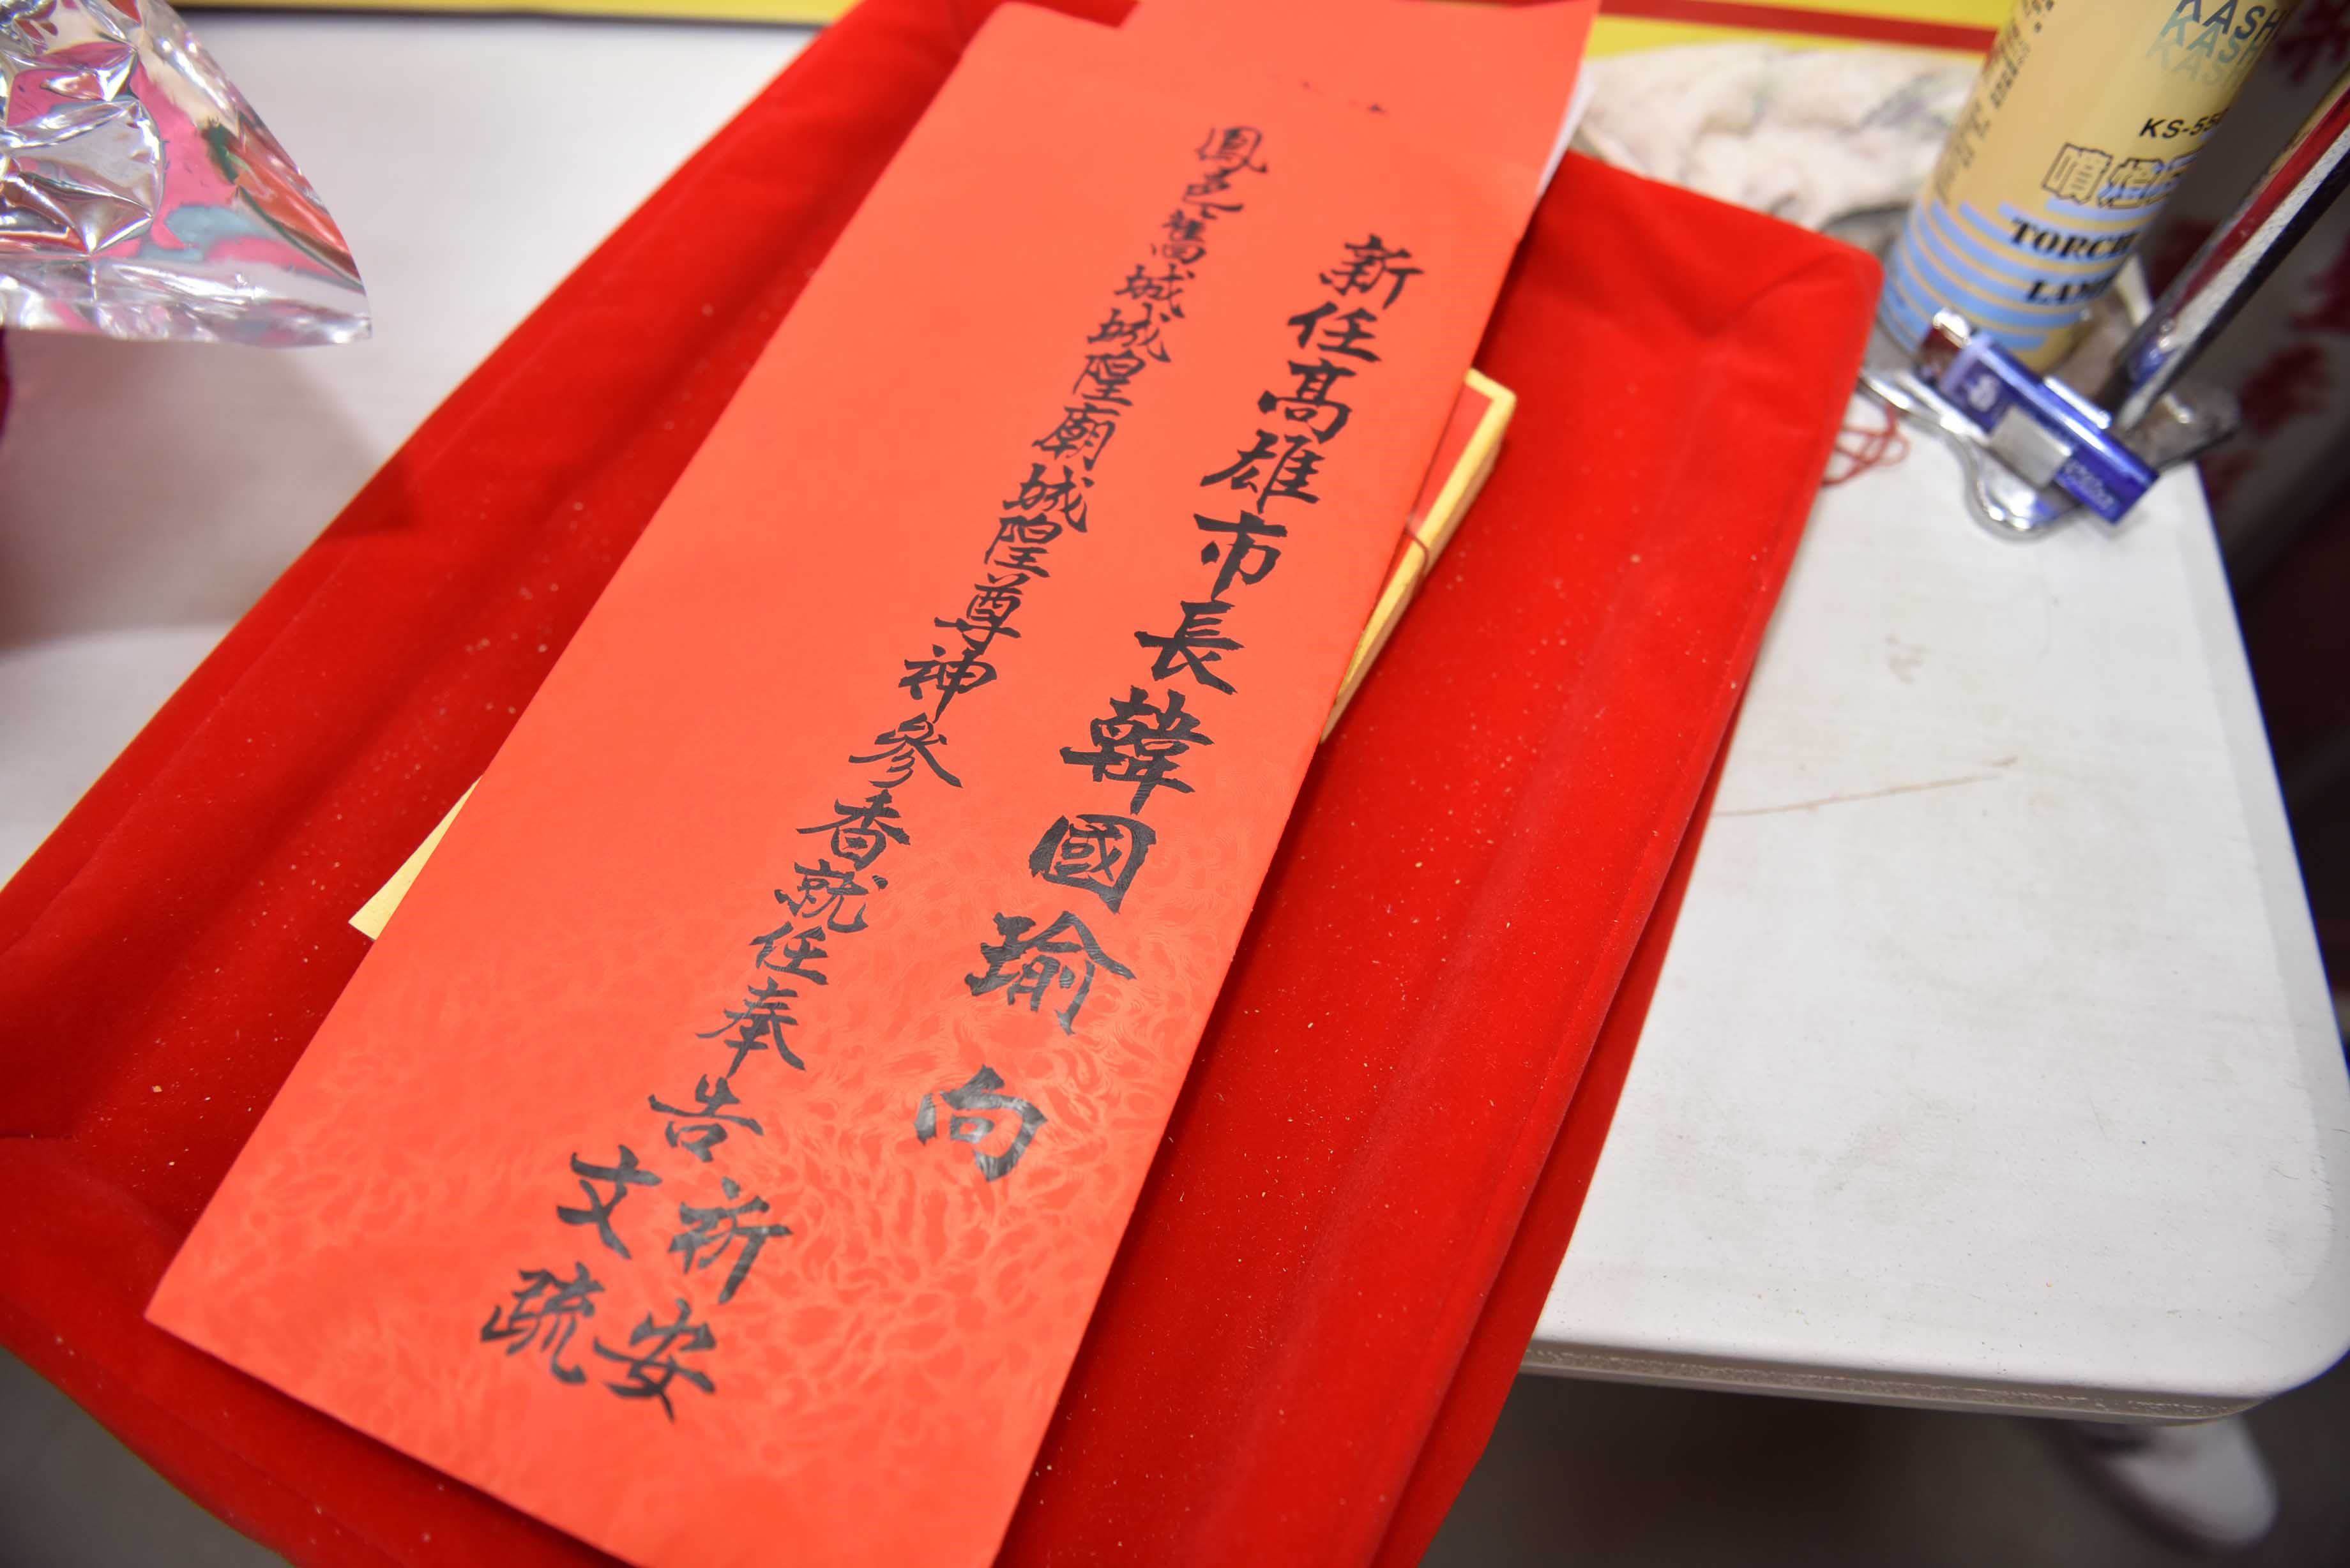 新任高雄市長韓國瑜 向
鳳邑舊城城隍廟城隍尊神參香就任奉告祈安
文疏
KASH
KASH
KAS
KS-55
噴燈
TORCH